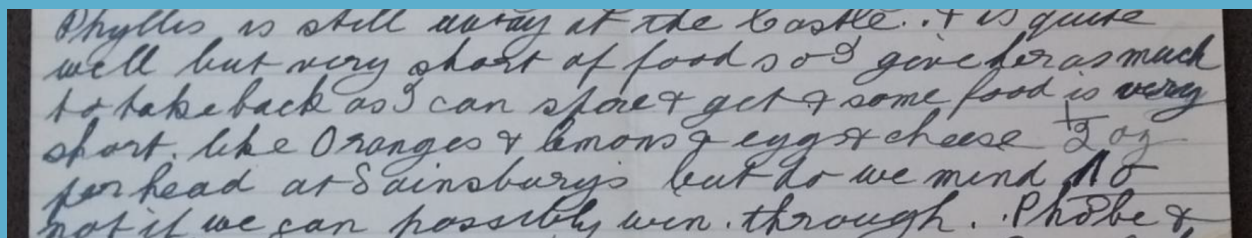 Phyllis is still away at the Castle. & is quite
well but very short of food so I give her as much
to take back as I can spare & get & some food is very
short. like Oranges & lemons & eggs & cheese 1/2 oz
per head at Sainsburys but do we mind No
not if we can possibly win through. Phobe &